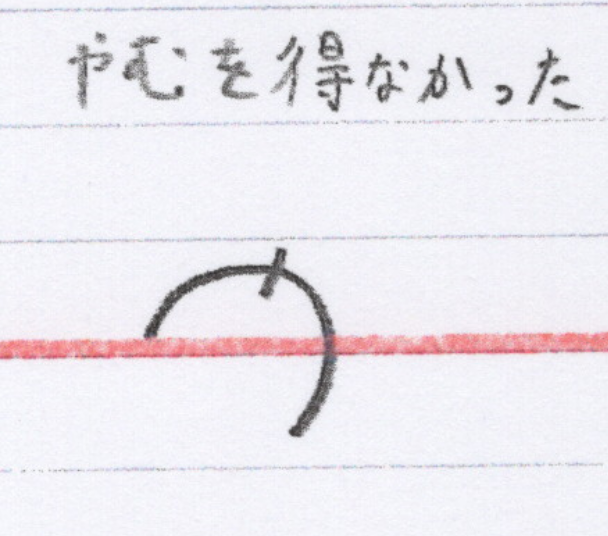 やむを得なかった